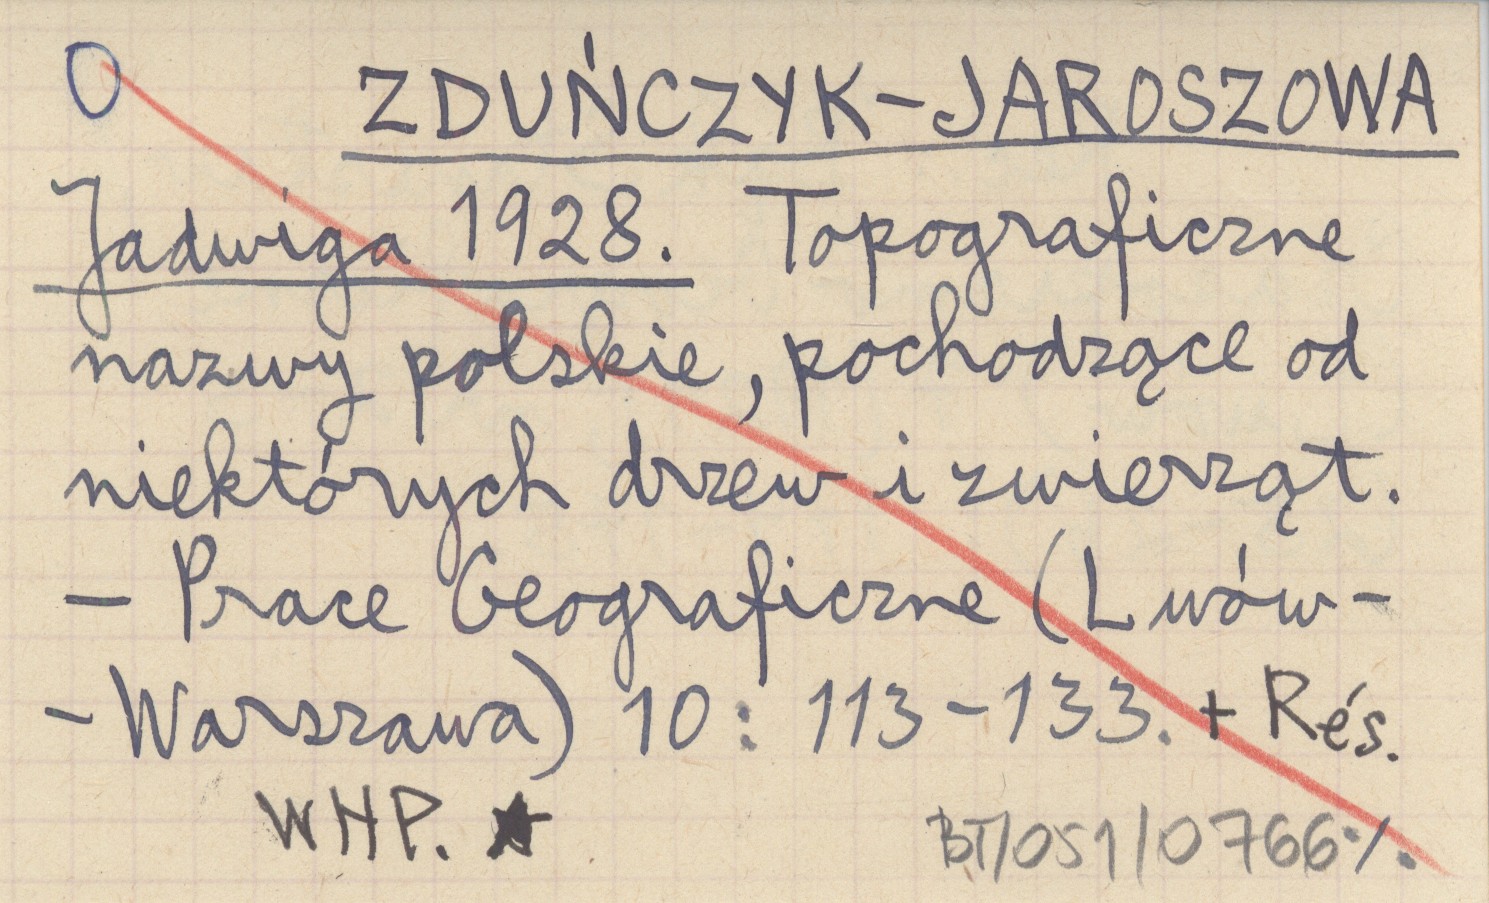 O ZDUŃCZYK-JAROSZOWA
Jadwiga 1928. Topograficzne
nazwy polskie, pochodzące od
niektórych drzew i zwierząt.
- Prace Geograficzne (Lwów-
-Warszawa) 10: 113-133. + Rés.
WHP. ★ BT/051/0766·/.